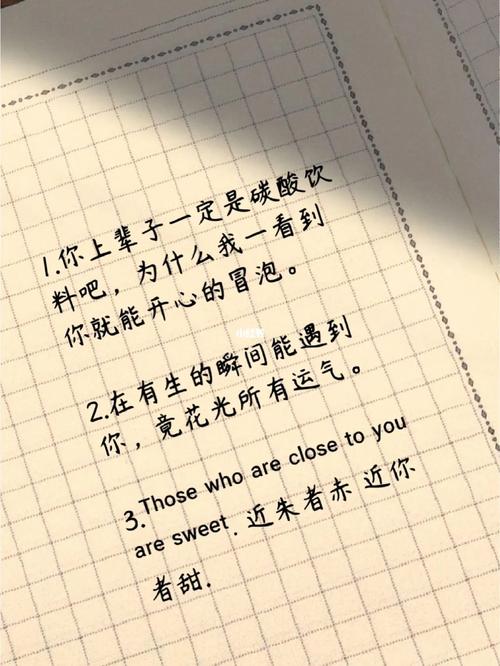 1.你上辈子一定是碳酸饮
料吧，为什么我一看到
你就能开心的冒泡。
小红书
2.在有生的瞬间能遇到
你，竟花光所有运气。
3.Those who are close to you
are sweet. 近朱者赤 近你
者甜.